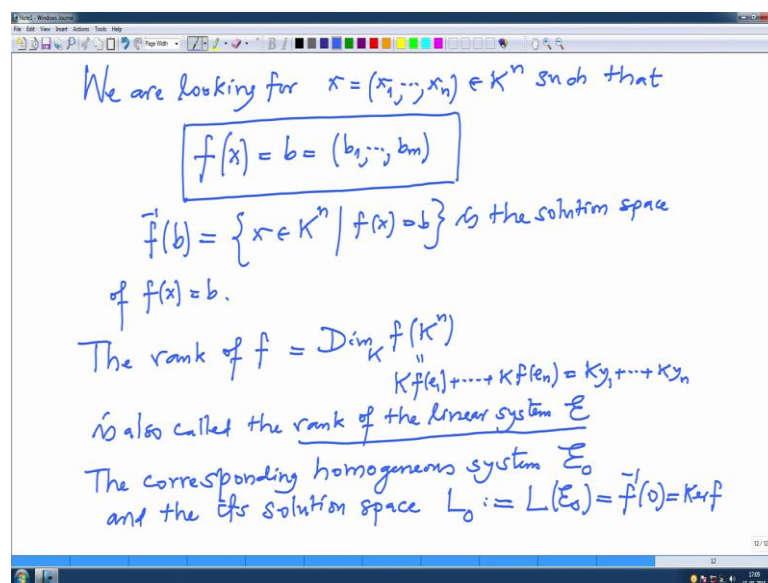 Note1 - Windows Journal
File Edit View Insert Actions Tools Help
Page Width
We are looking for x = (x₁, ..., xₙ) ∈ Kⁿ such that
f(x) = b = (b₁, ..., bₘ)
f⁻¹(b) = {x ∈ Kⁿ | f(x) = b} is the solution space
of f(x) = b.
The rank of f = Dim_K f(Kⁿ)
"
Kf(e₁) + ... + Kf(eₙ) = Ky₁ + ... + Kyₙ
is also called the rank of the linear system ℰ
The corresponding homogeneous system ℰ₀
and the its solution space L₀ := L(ℰ₀) = f⁻¹(0) = Ker f
12/12
12
17:09